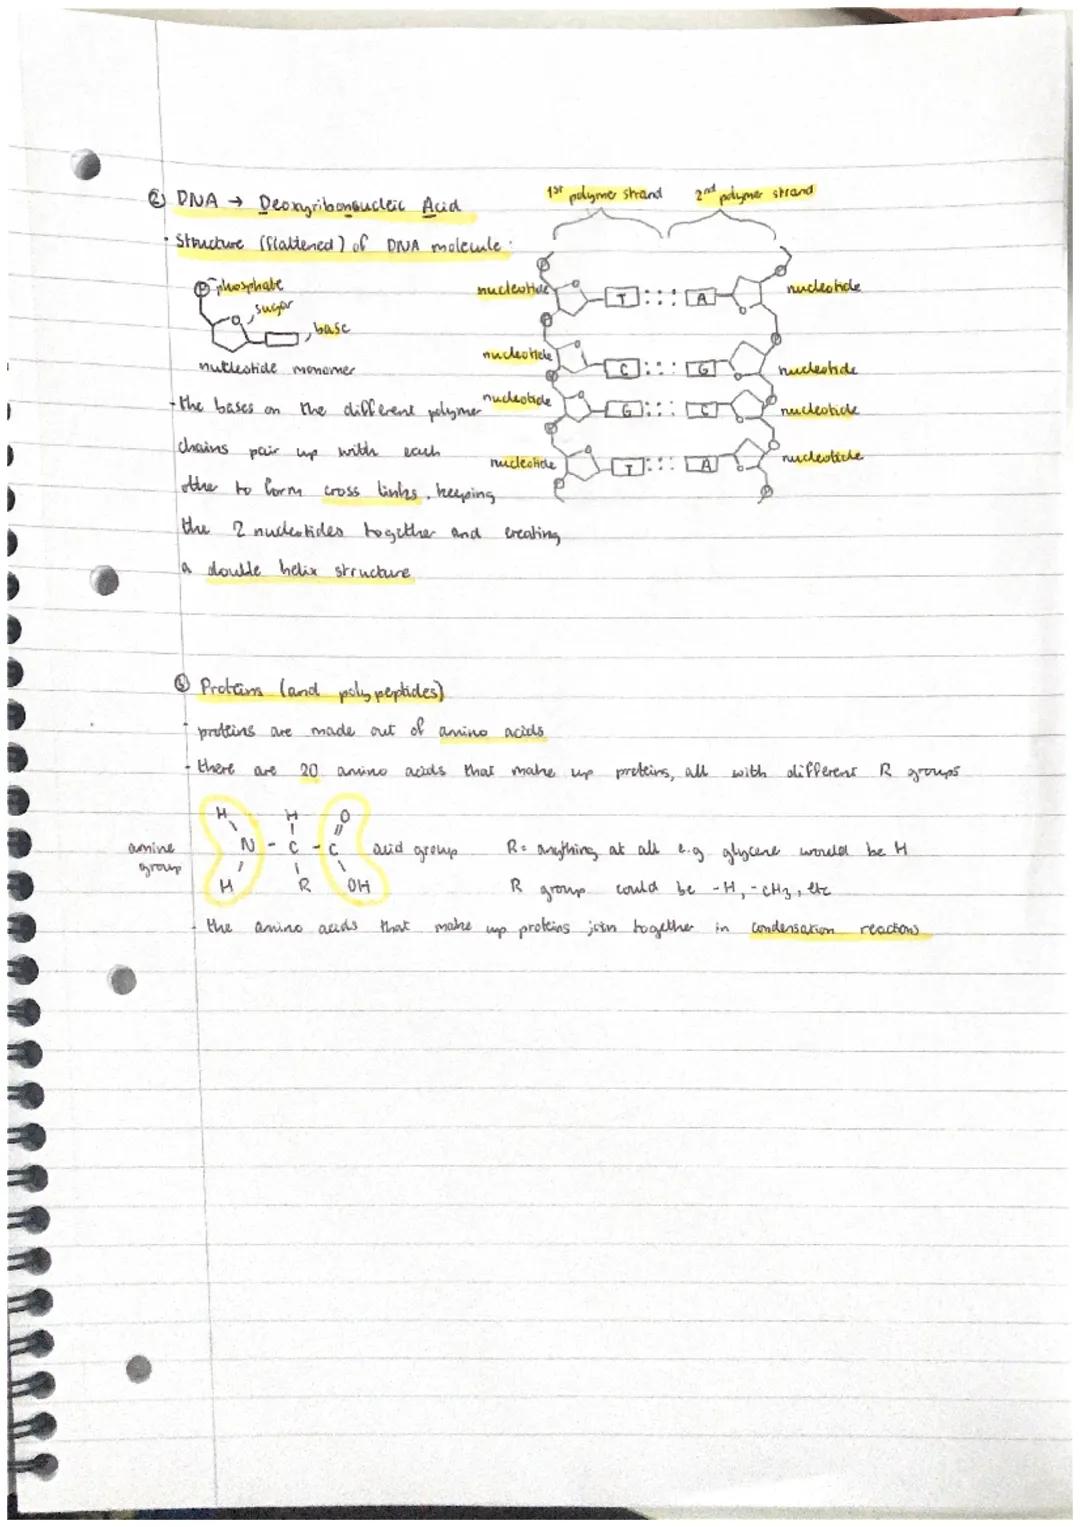 ② DNA → Deoxyribonucleic Acid
· Structure (flattened) of DNA molecule:
1st polymer strand 2nd polymer strand
P phosphate
sugar
base
nucleotide monomer
nucleotide T A nucleotide
nucleotide C G nucleotide
nucleotide G C nucleotide
nucleotide T A nucleotide
- the bases on the different polymer
chains pair up with each
other to form cross links, keeping
the 2 nucleotides together and creating
a double helix structure
③ Proteins (and polypeptides)
- proteins are made out of amino acids
- there are 20 amino acids that make up proteins, all with different R groups
H H O
amine group N - C - C acid group R = anything at all e.g glycene would be H
H R OH R group could be -H, -CH3, etc
- the amino acids that make up proteins join together in condensation reactions